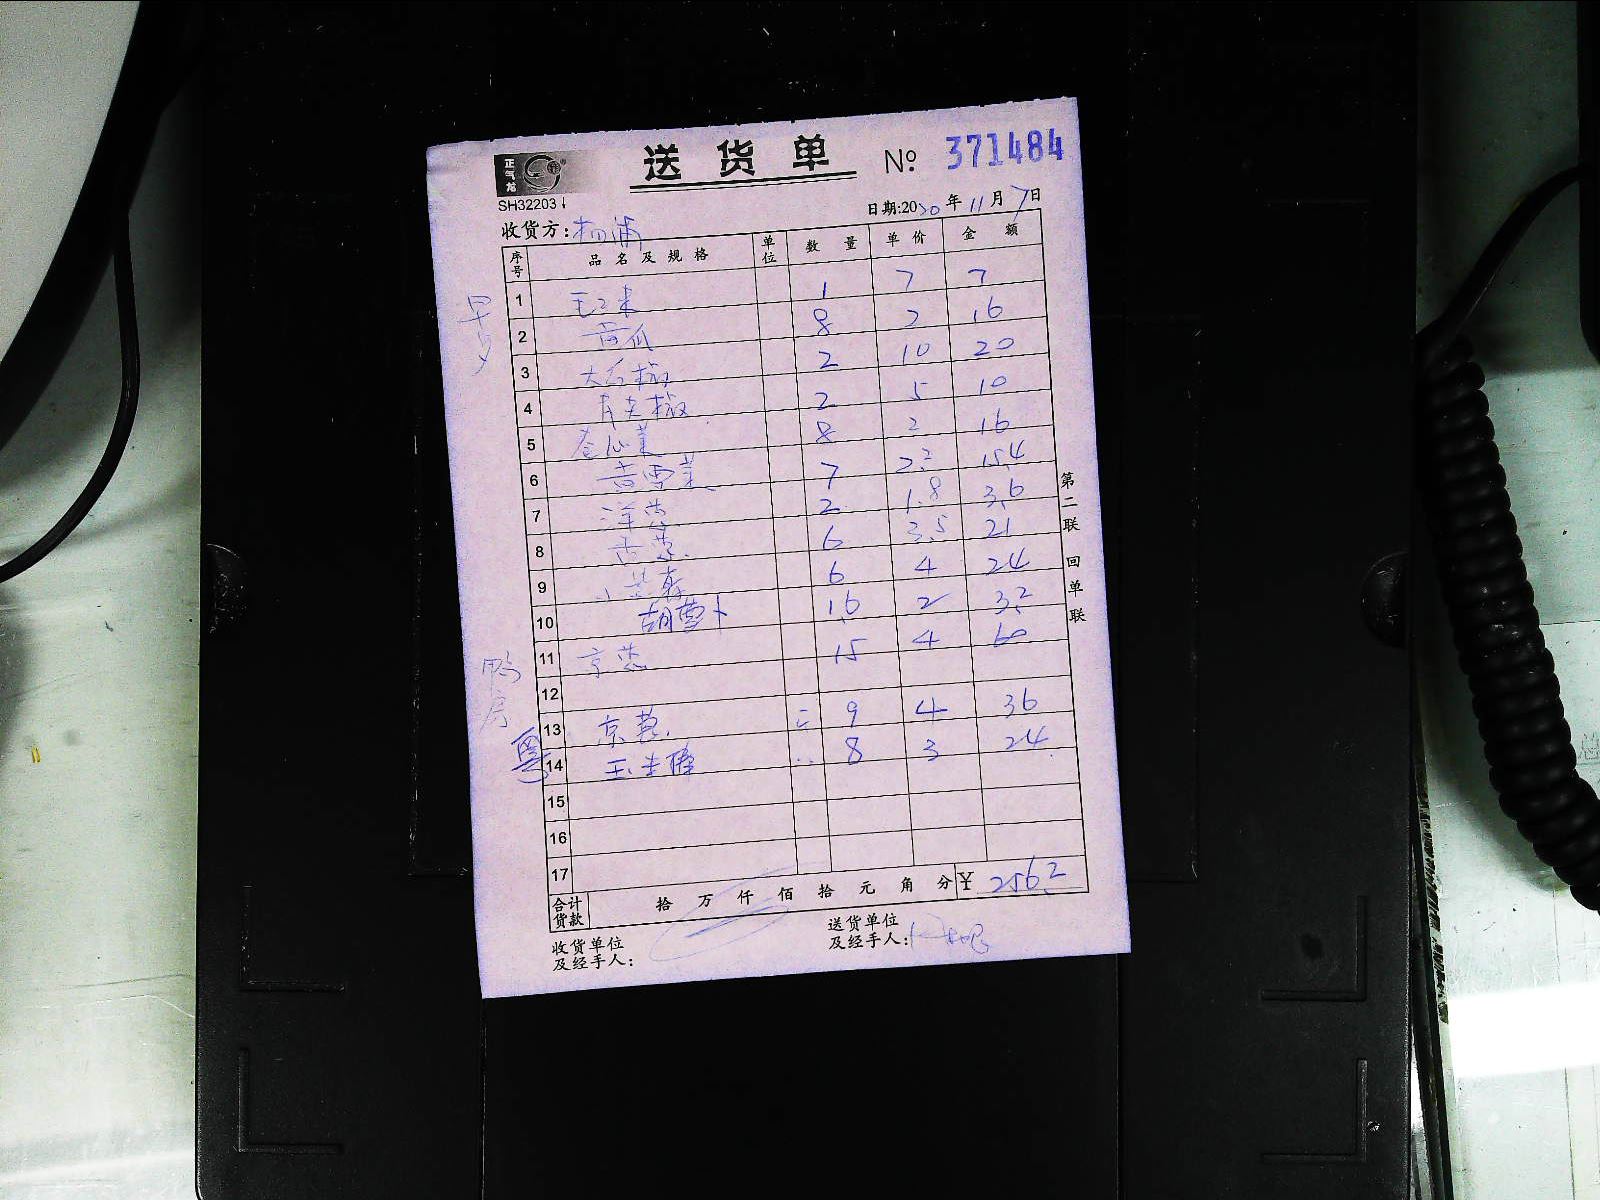 正气龙
送货单 № 371484
SH32203
日期:2020年11月7日
收货方:杨浦
序号 品名及规格 单位 数量 单价 金额
早夕
1 玉米 1 7 7
2 黄瓜 8 2 16
3 大石椒 2 10 20
4 青尖椒 2 5 10
5 卷心菜 8 2 16
6 7 2.2 15.4
7 洋葱 2 1.8 3.6
8 香葱 6 3.5 21
9 6 4 24
10 胡萝卜 16 2 32
11 京葱 15 4 60
12
鸭房
13 京葱 9 4 36
粤
14 8 3 24
15
16
17
合计货款 拾 万 仟 佰 拾 元 角 分 ¥ 256.2
收货单位及经手人:
送货单位及经手人:
第二联 回单联